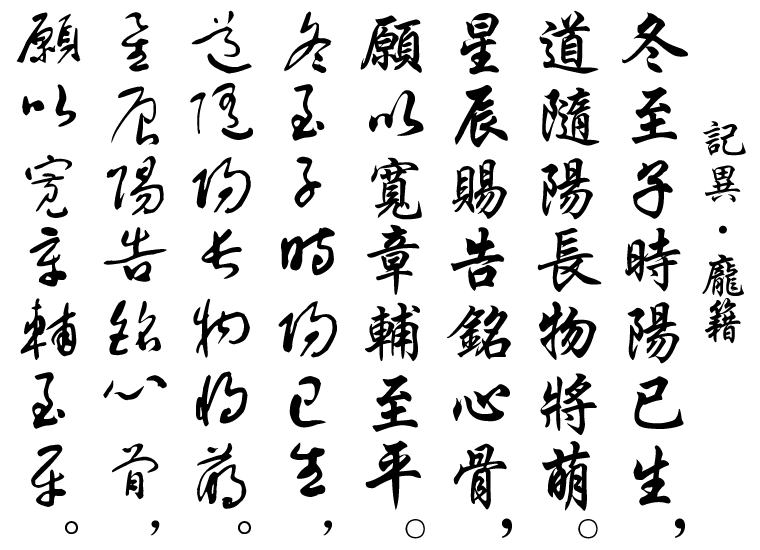 記異・龐籍
冬至子時陽已生，
道隨陽長物將萌。
星辰賜告銘心骨，
願以寬章輔至平。
冬至子時陽已生，
道隨陽長物將萌。
星辰賜告銘心骨，
願以寬章輔至平。